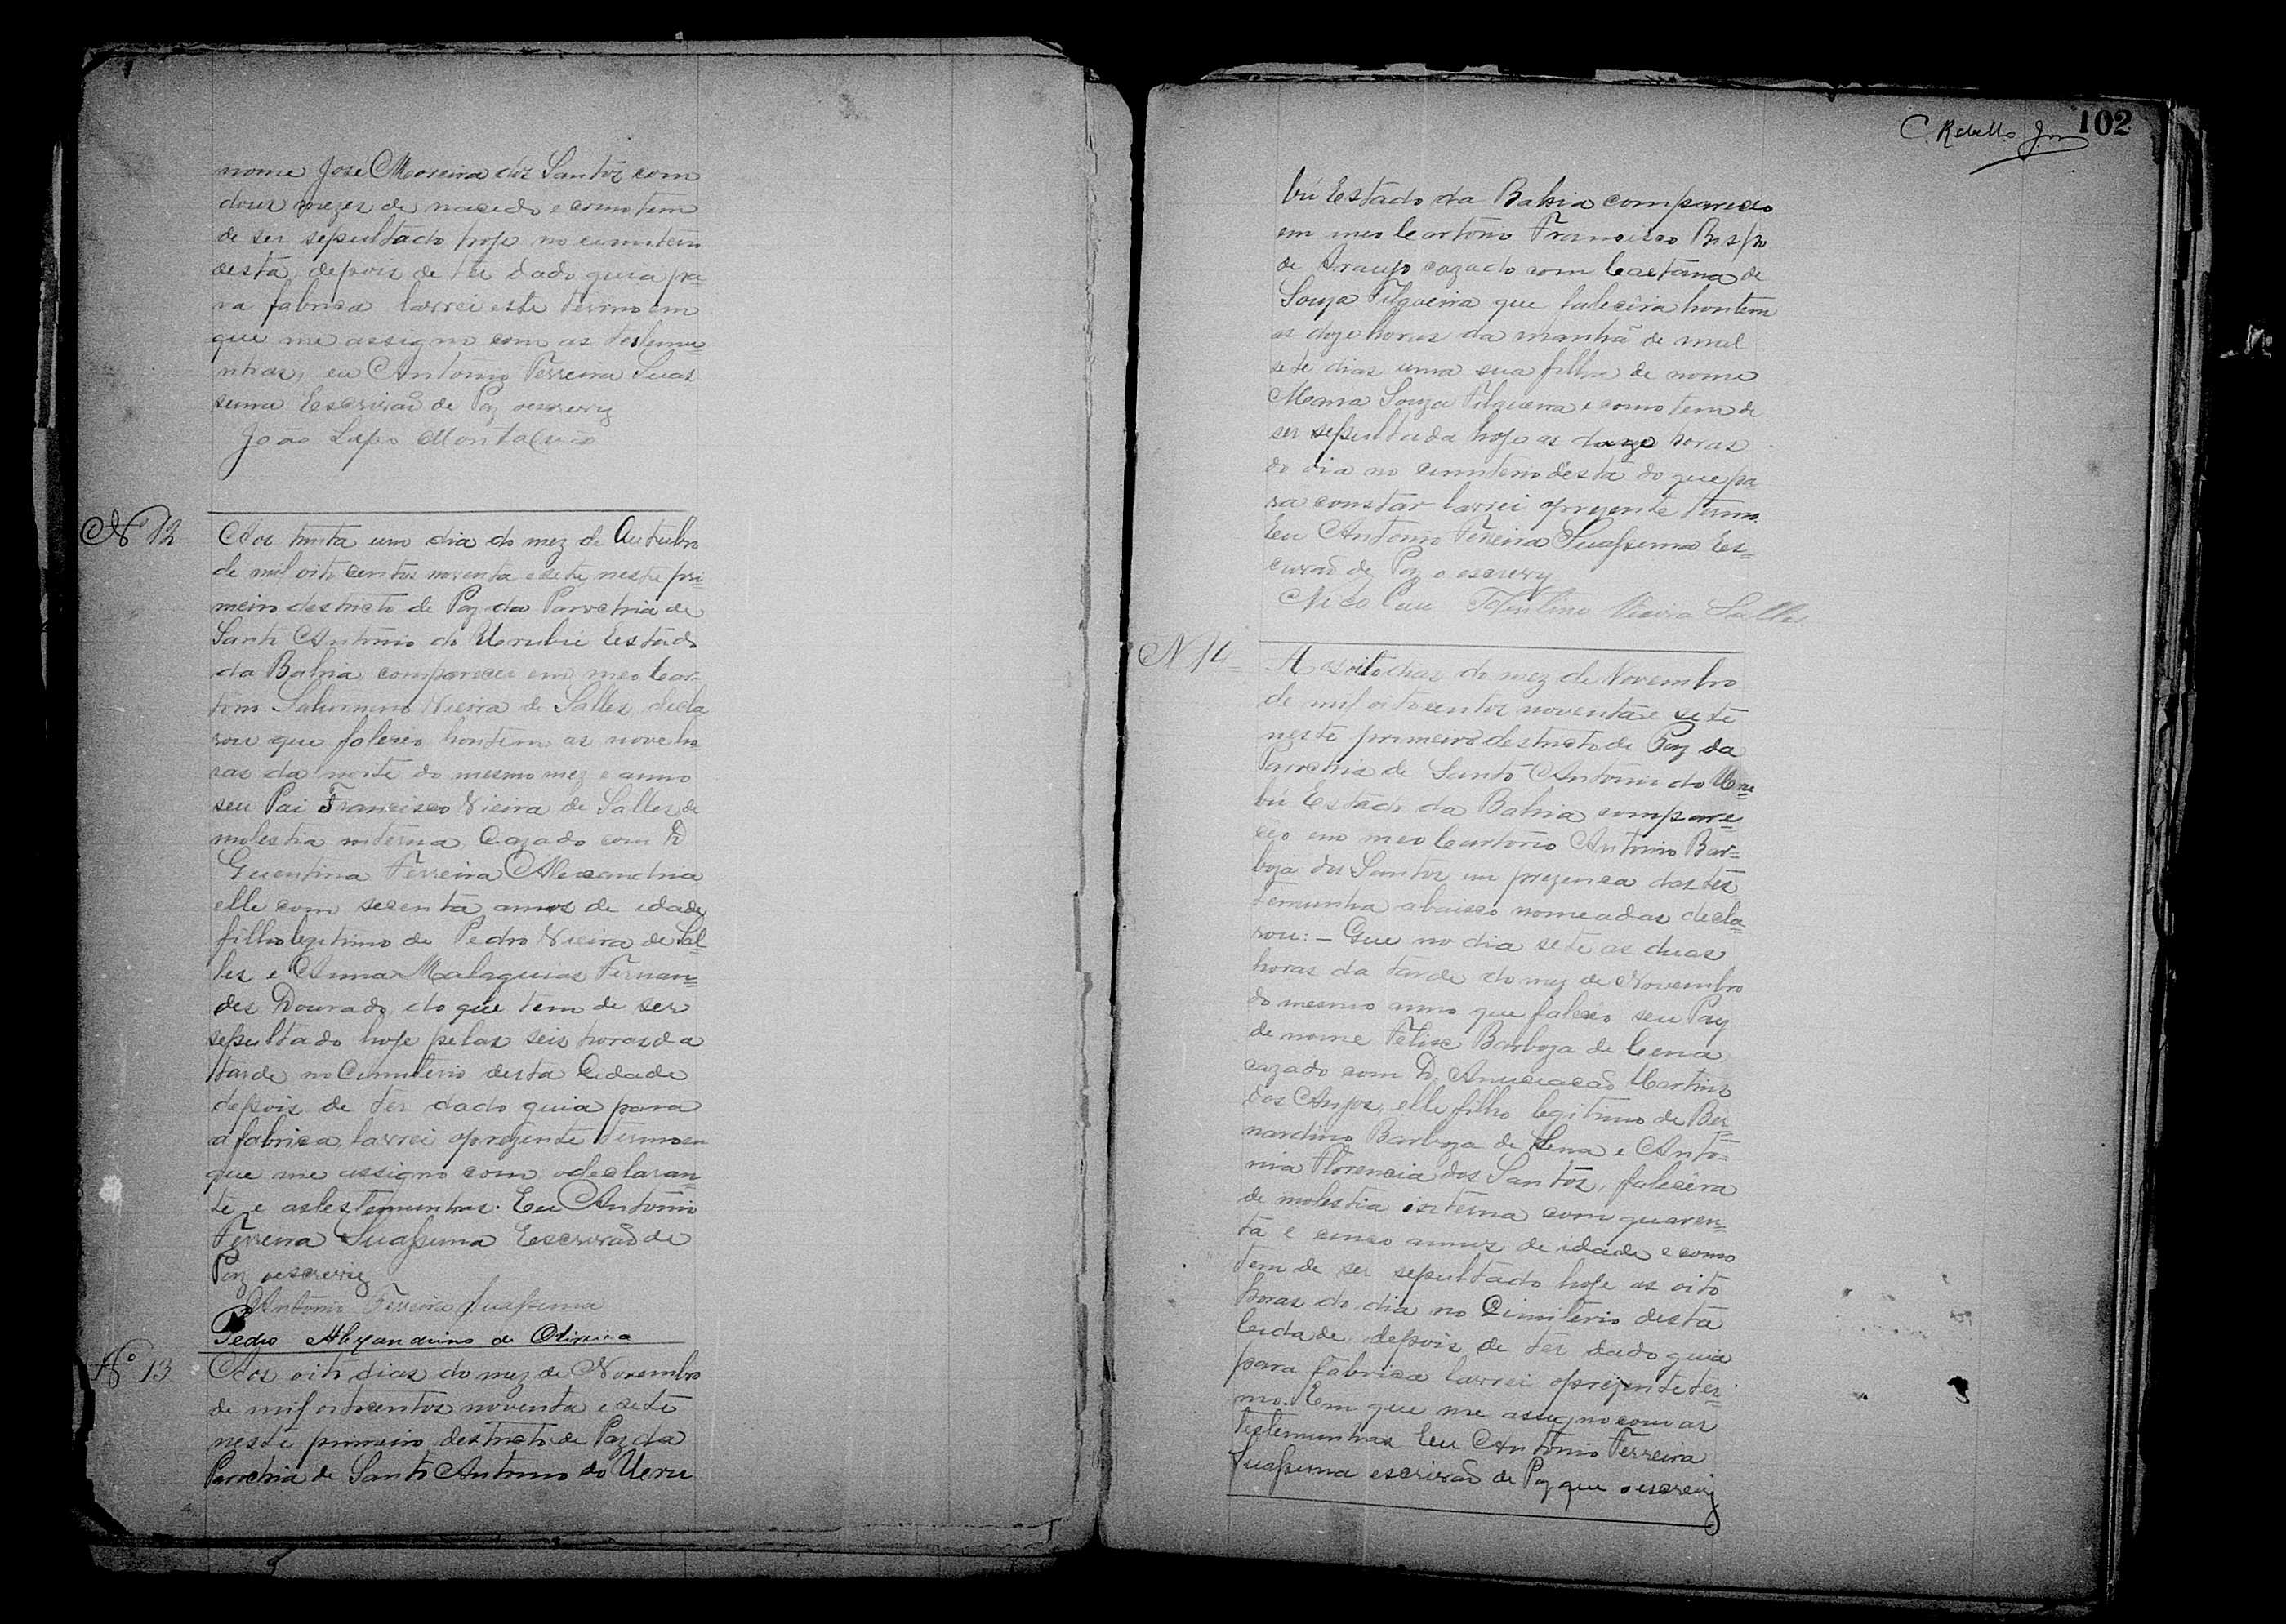 nome Jose Moreira dos Santos com
dous mezes de nacido e como tem
de ser sepultado hoje no cimiterio
desta, depois de ter dado guia pa-
ra fabrica lavrei este termo em
que me assigno com as testemu=
nhas, eu Antonio Ferreira Suas
suna Escrivaõ de Paz o escrevy
João Lopes Montalvão
Nº 12
Aos trinta um dia do mez de Outubro
de mil oito centos noventa e sete neste pri
meiro destricto de Paz da Parochia de
Santo Antonio do Urubú Estado
da Bahia compareceu em meo Car-
torio Saturnino Vieira de Salles, decla
rou que faleceo hontem as nove ho
ras da noite do mesmo mez e anno
seu Pai Francisco Vieira de Salles, de
molestia interna, Cazado com D
Guentina Ferreira Alexandria
elle com secenta annos de idade
filho legitimo de Pedro Vieira de Sal-
les e Anna Malaquias Fernan=
des Dourado, do que tem de ser
sepultado hoje pelas seis horas da
tarde no Cimiterio desta Cidade
depois de ter dado guia para
a fabrica, lavrei o prezente termo em
que me assigno com o declaran-
te e as testemunhas. Eu Antonio
Ferreira Suassuna Escrivaõ de
Paz o escreviy
Antonio Ferreira Suassuna
Pedro Alexandrino de Oliveira
Nº 13
Aos oito dias do mez de Novembro
de mil oitocentos noventa e sete
neste primeiro destricto de Paz da
Parochia de Santo Antonio do Uru
C. Rebello Jor
102
bú Estado da Bahia compareceo
em meo Cartorio Francisco Bispo
de Araujo cazado com Caetana de
Souza Filgueira que falecêra hontem
as doze horas da manhã de mal
sete dias uma sua filha de nome
Maria Souza Filgueira e como tem de
ser sepultada hoje as doze horas
do dia no cimiterio desta do que pa
ra constar lavrei o prezente termo.
Eu Antonio Ferreira Suassuna Es=
crivaõ de Paz o escrevy
Nicolau Tolentino Vieira Salles
N 14
Aos oito dias do mez de Novembro
de mil oitocentos noventa e sete
neste primeiro destricto de Paz da
Parochia de Santo Antonio do Uru=
bú Estado da Bahia compare=
ceo em meo Cartorio Antonio Bar=
boza dos Santos em prezenca das tes
temunha abaixo nomeadas decla-
rou: - Que no dia sete as duas
horas da tarde do mez de Novembro
do mesmo anno que faleceo seu Pay
de nome Felix Barboza de Cena
cazado com D. Anuciacaõ Martins
dos Anjos, elle filho legitimo de Ber=
nardino Barboza de Sena e Anto-
nia Florencia dos Santos, falecêra
de molestia interna com quaren=
ta e cinco annos de idade e como
tem de ser sepultado hoje as oito
horas do dia no Cimiterio desta
Cidade, depois de ter dado guia
para fabrica lavrei o prezente ter=
mo. Em que me assigno com as
testemunhas Eu Antonio Ferreira
Suassuna escrivaõ de Paz que o escreviy